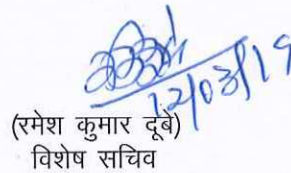 12/03/19
(रमेश कुमार दूबे)
विशेष सचिव